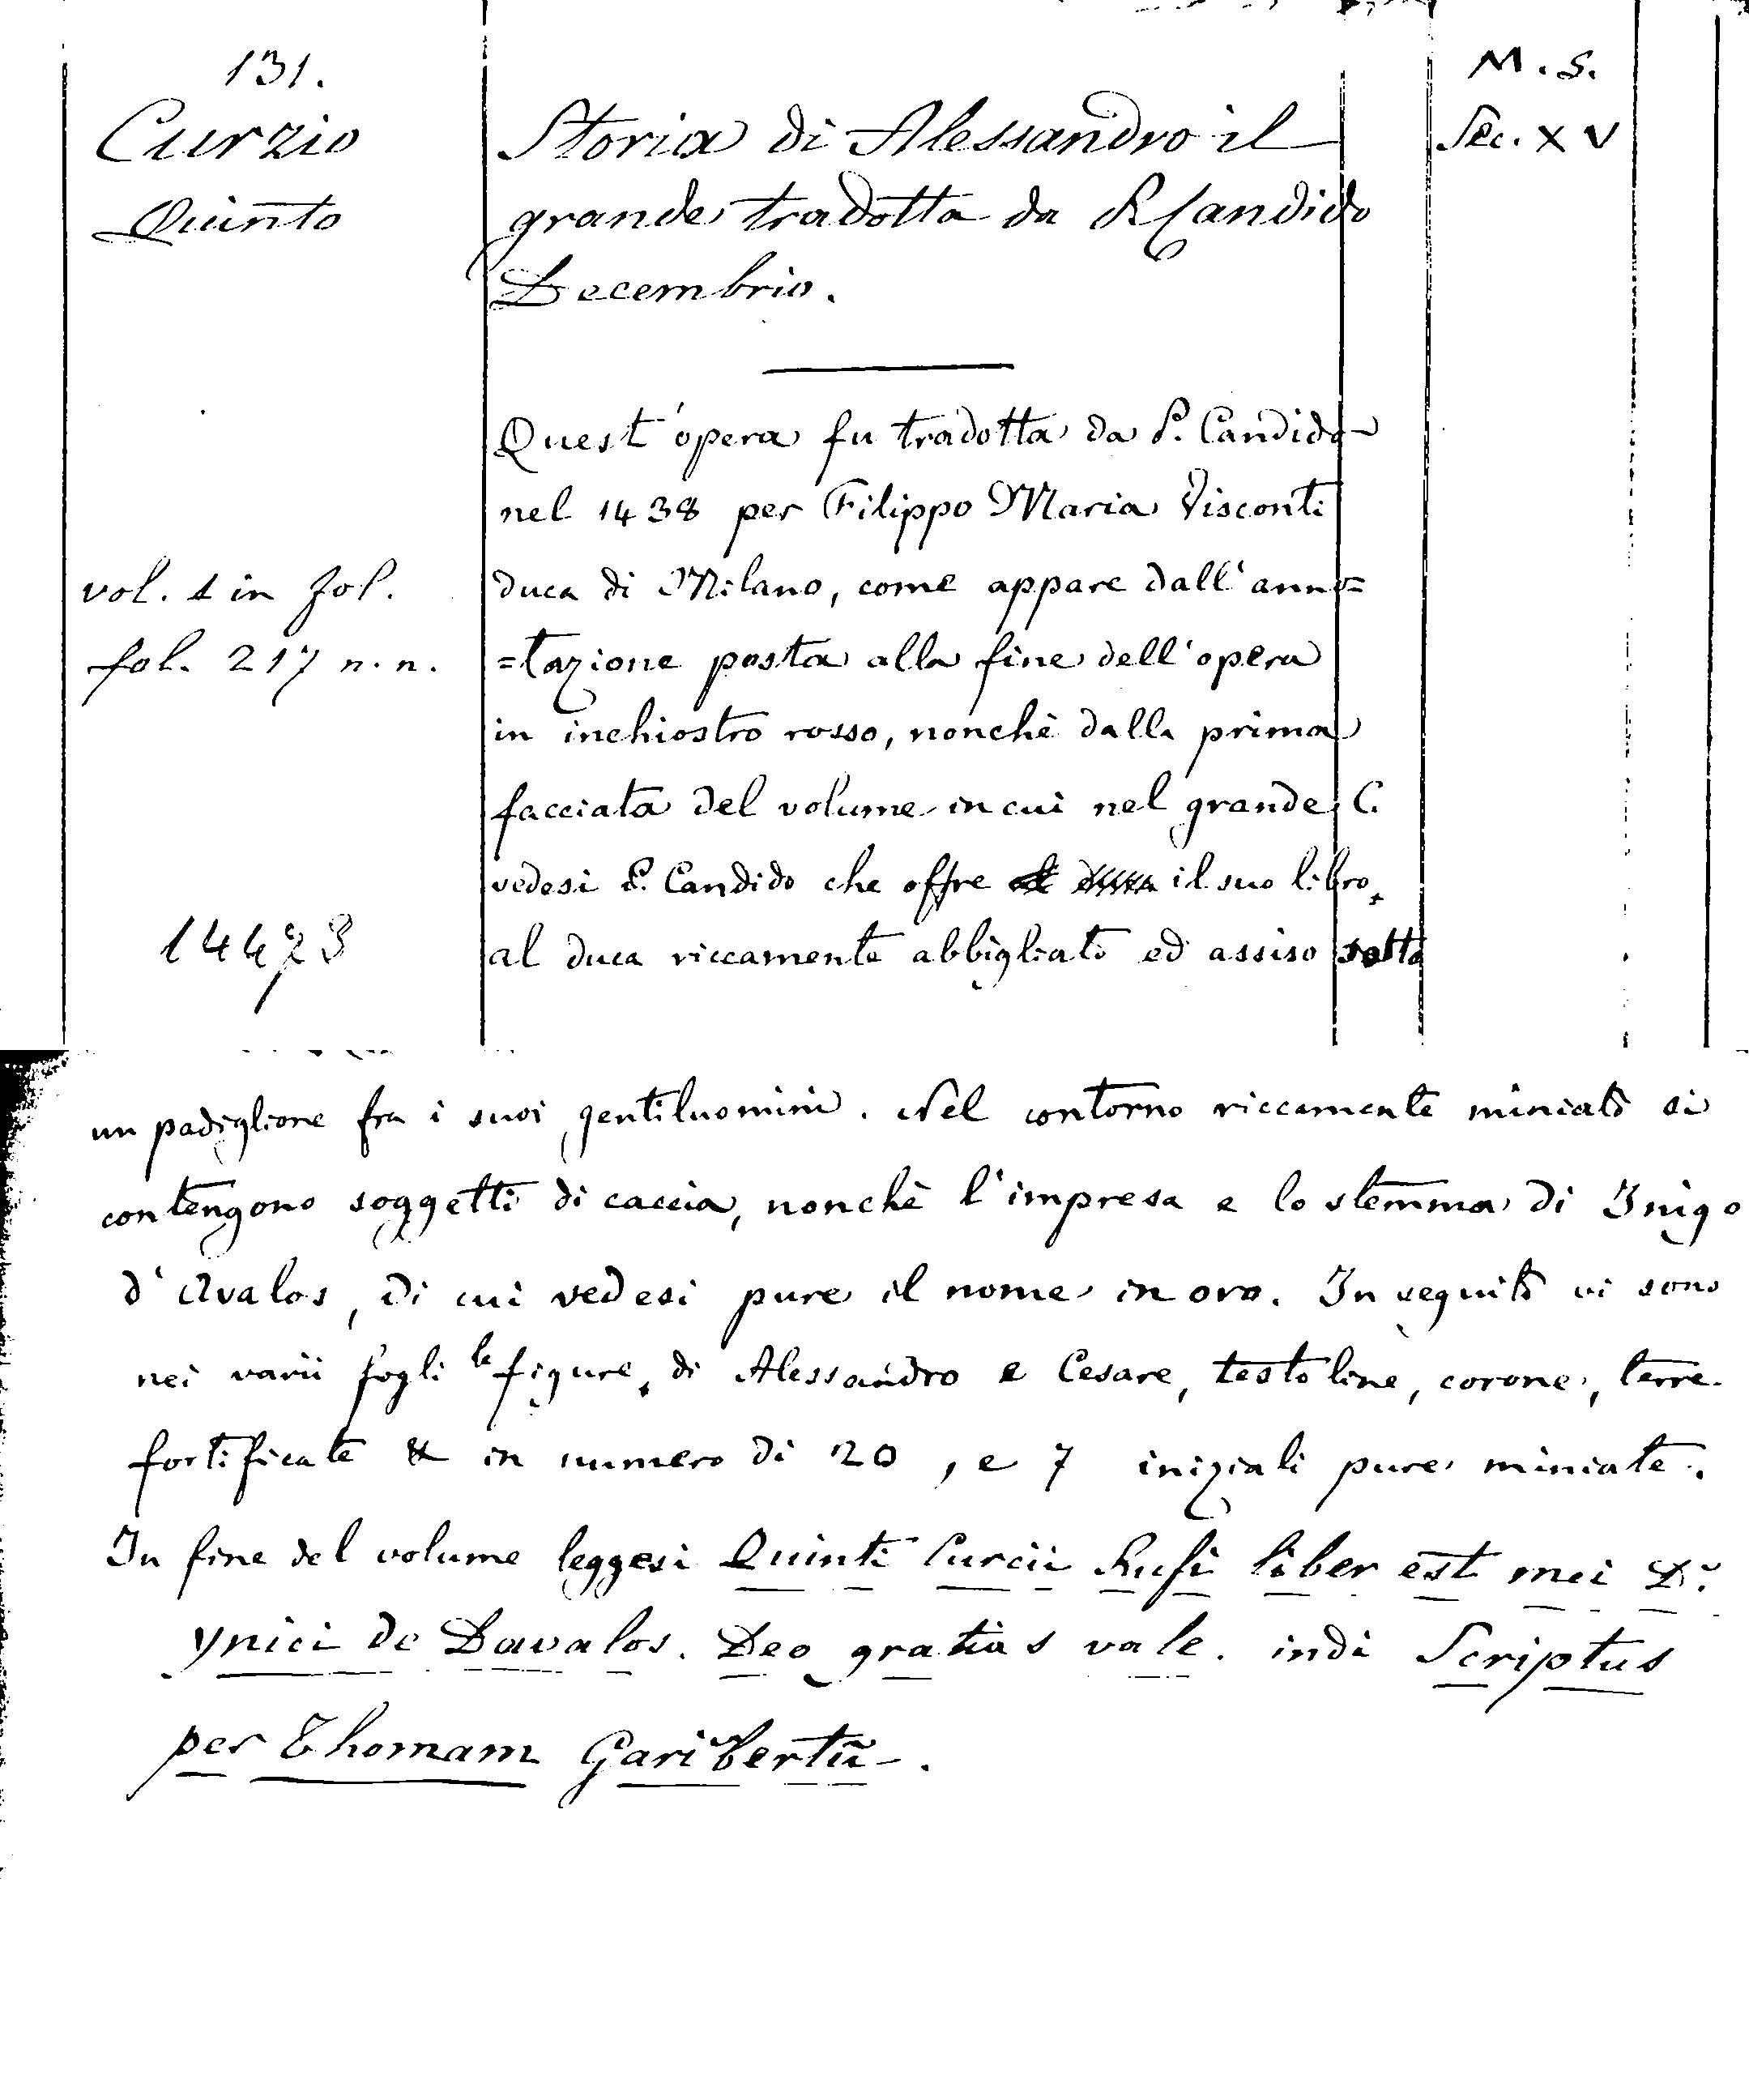 131.
M. S.
Curzio
Quinto
Storia di Alessandro il
Sec. XV
grande tradotta da P. Candido
Decembrio.
Quest'opera fu tradotta da P. Candido
nel 1438 per Filippo Maria Visconti
vol. 1 in fol.
duca di Milano, come appare dall'anno=
fol. 217 n. n.
=tazione posta alla fine dell'opera
in inchiostro rosso, nonchè dalla prima
facciata del volume in cui nel grande C.
vedesi P. Candido che offre il suo libro
14423
al duca riccamente abbigliato ed assiso sotto
un padiglione fra i suoi gentiluomini. Nel contorno riccamente miniato si
contengono soggetti di caccia, nonchè l'impresa e lo stemma di Inigo
d'Avalos, di cui vedesi pure il nome in oro. In seguito vi sono
nei varii fogli le figure, di Alessandro e Cesare, testoline, corone, terre
fortificate & in numero di 20, e 7 iniziali pure miniate.
In fine del volume leggesi Quinti Curcii Rufi liber est mei D.
ynici de Davalos. Deo gratias vale. indi Scriptus
per Thomam Garibertũ.